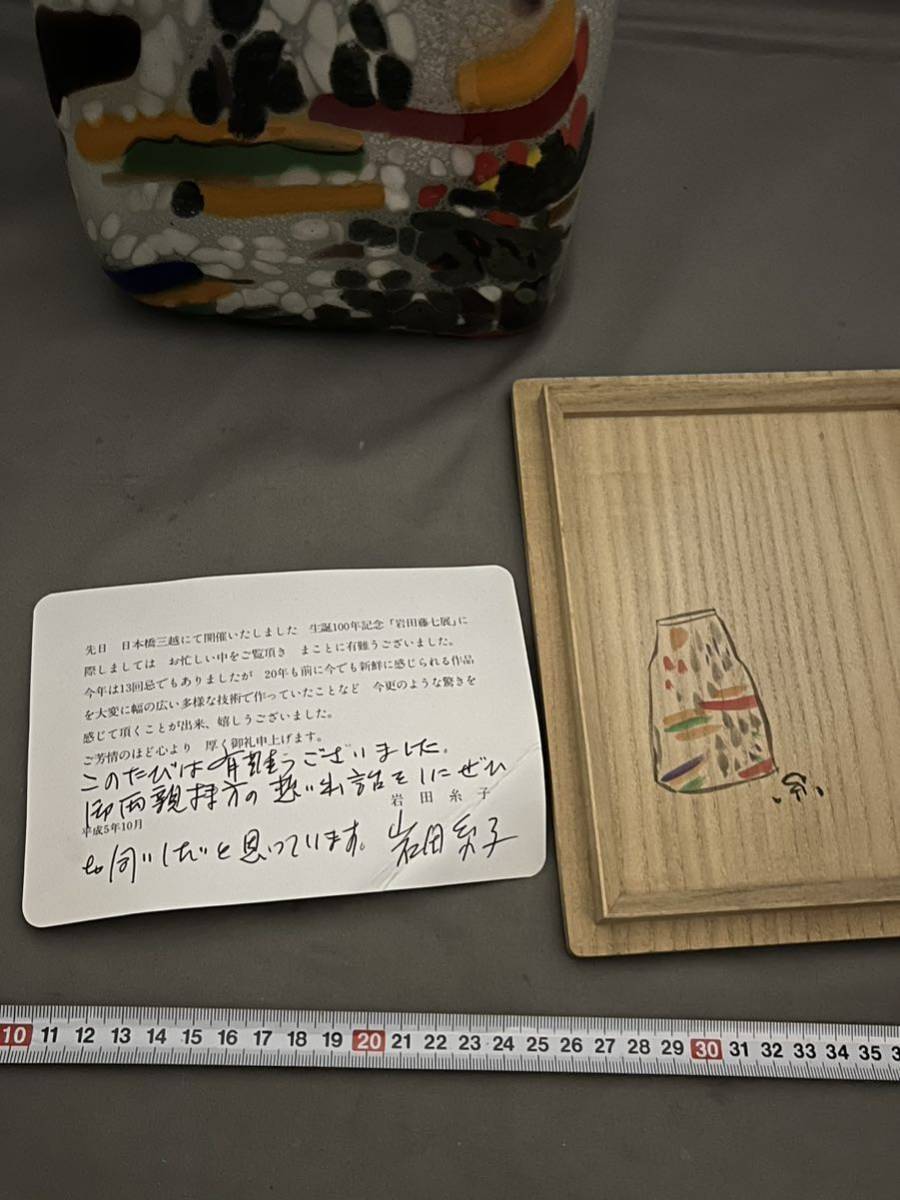 先日　日本橋三越にて開催いたしました　生誕100年記念「岩田藤七展」に
際しましては　お忙しい中をご覧頂き　まことに有難うございました。
今年は13回忌でもありましたが　20年も前に今でも新鮮に感じられる作品
を大変に幅の広い多様な技術で作っていたことなど　今更のような驚きを
感じて頂くことが出来、嬉しうございました。
ご芳情のほど心より　厚く御礼申上げます。
このたびは有難うございました。
御両親様方の想い出話をしにぜひ
岩田糸子
平成5年10月
お伺いしたいと思っています。岩田糸子
糸
10 11 12 13 14 15 16 17 18 19 20 21 22 23 24 25 26 27 28 29 30 31 32 33 34 35